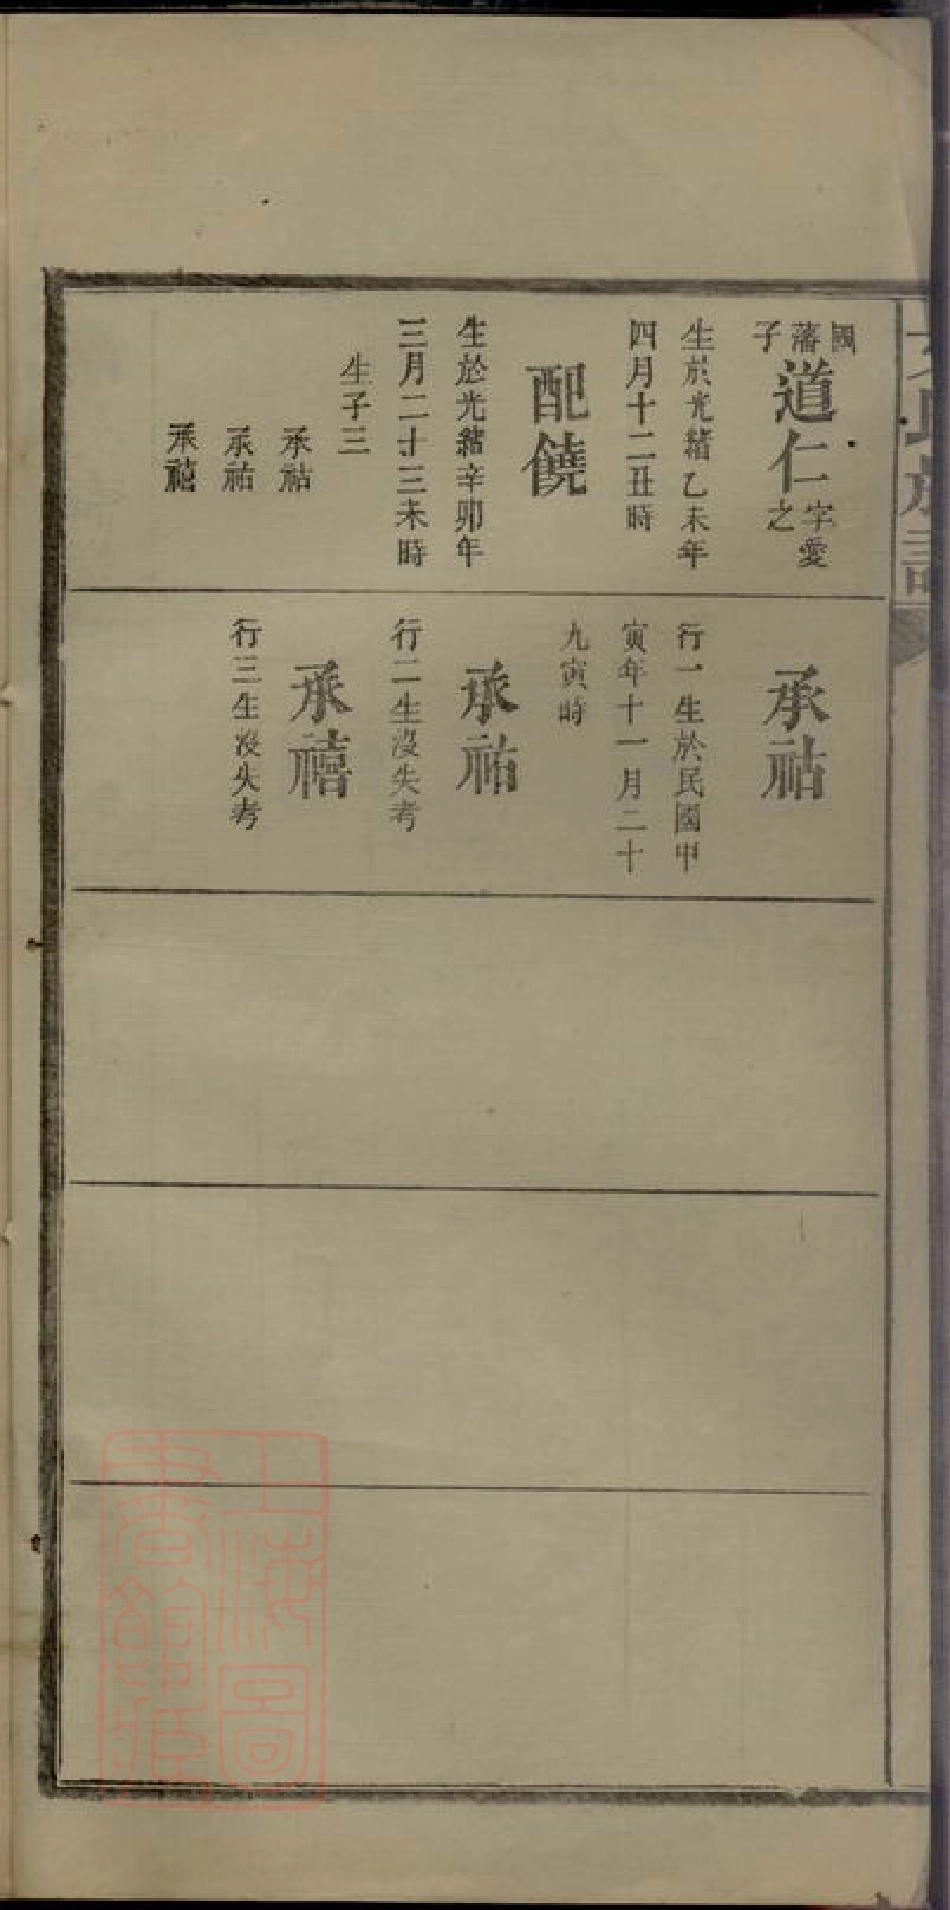 國藩子
道仁
字愛之
生於光緒乙未年
四月十二丑時
配饒
生於光緒辛卯年
三月二十三未時
生子三
承祜
承祐
承禧
承祜
行一生於民國甲
寅年十一月二十
九寅時
承祐
行二生沒失考
承禧
行三生沒失考
氏族譜
上海圖
書館藏